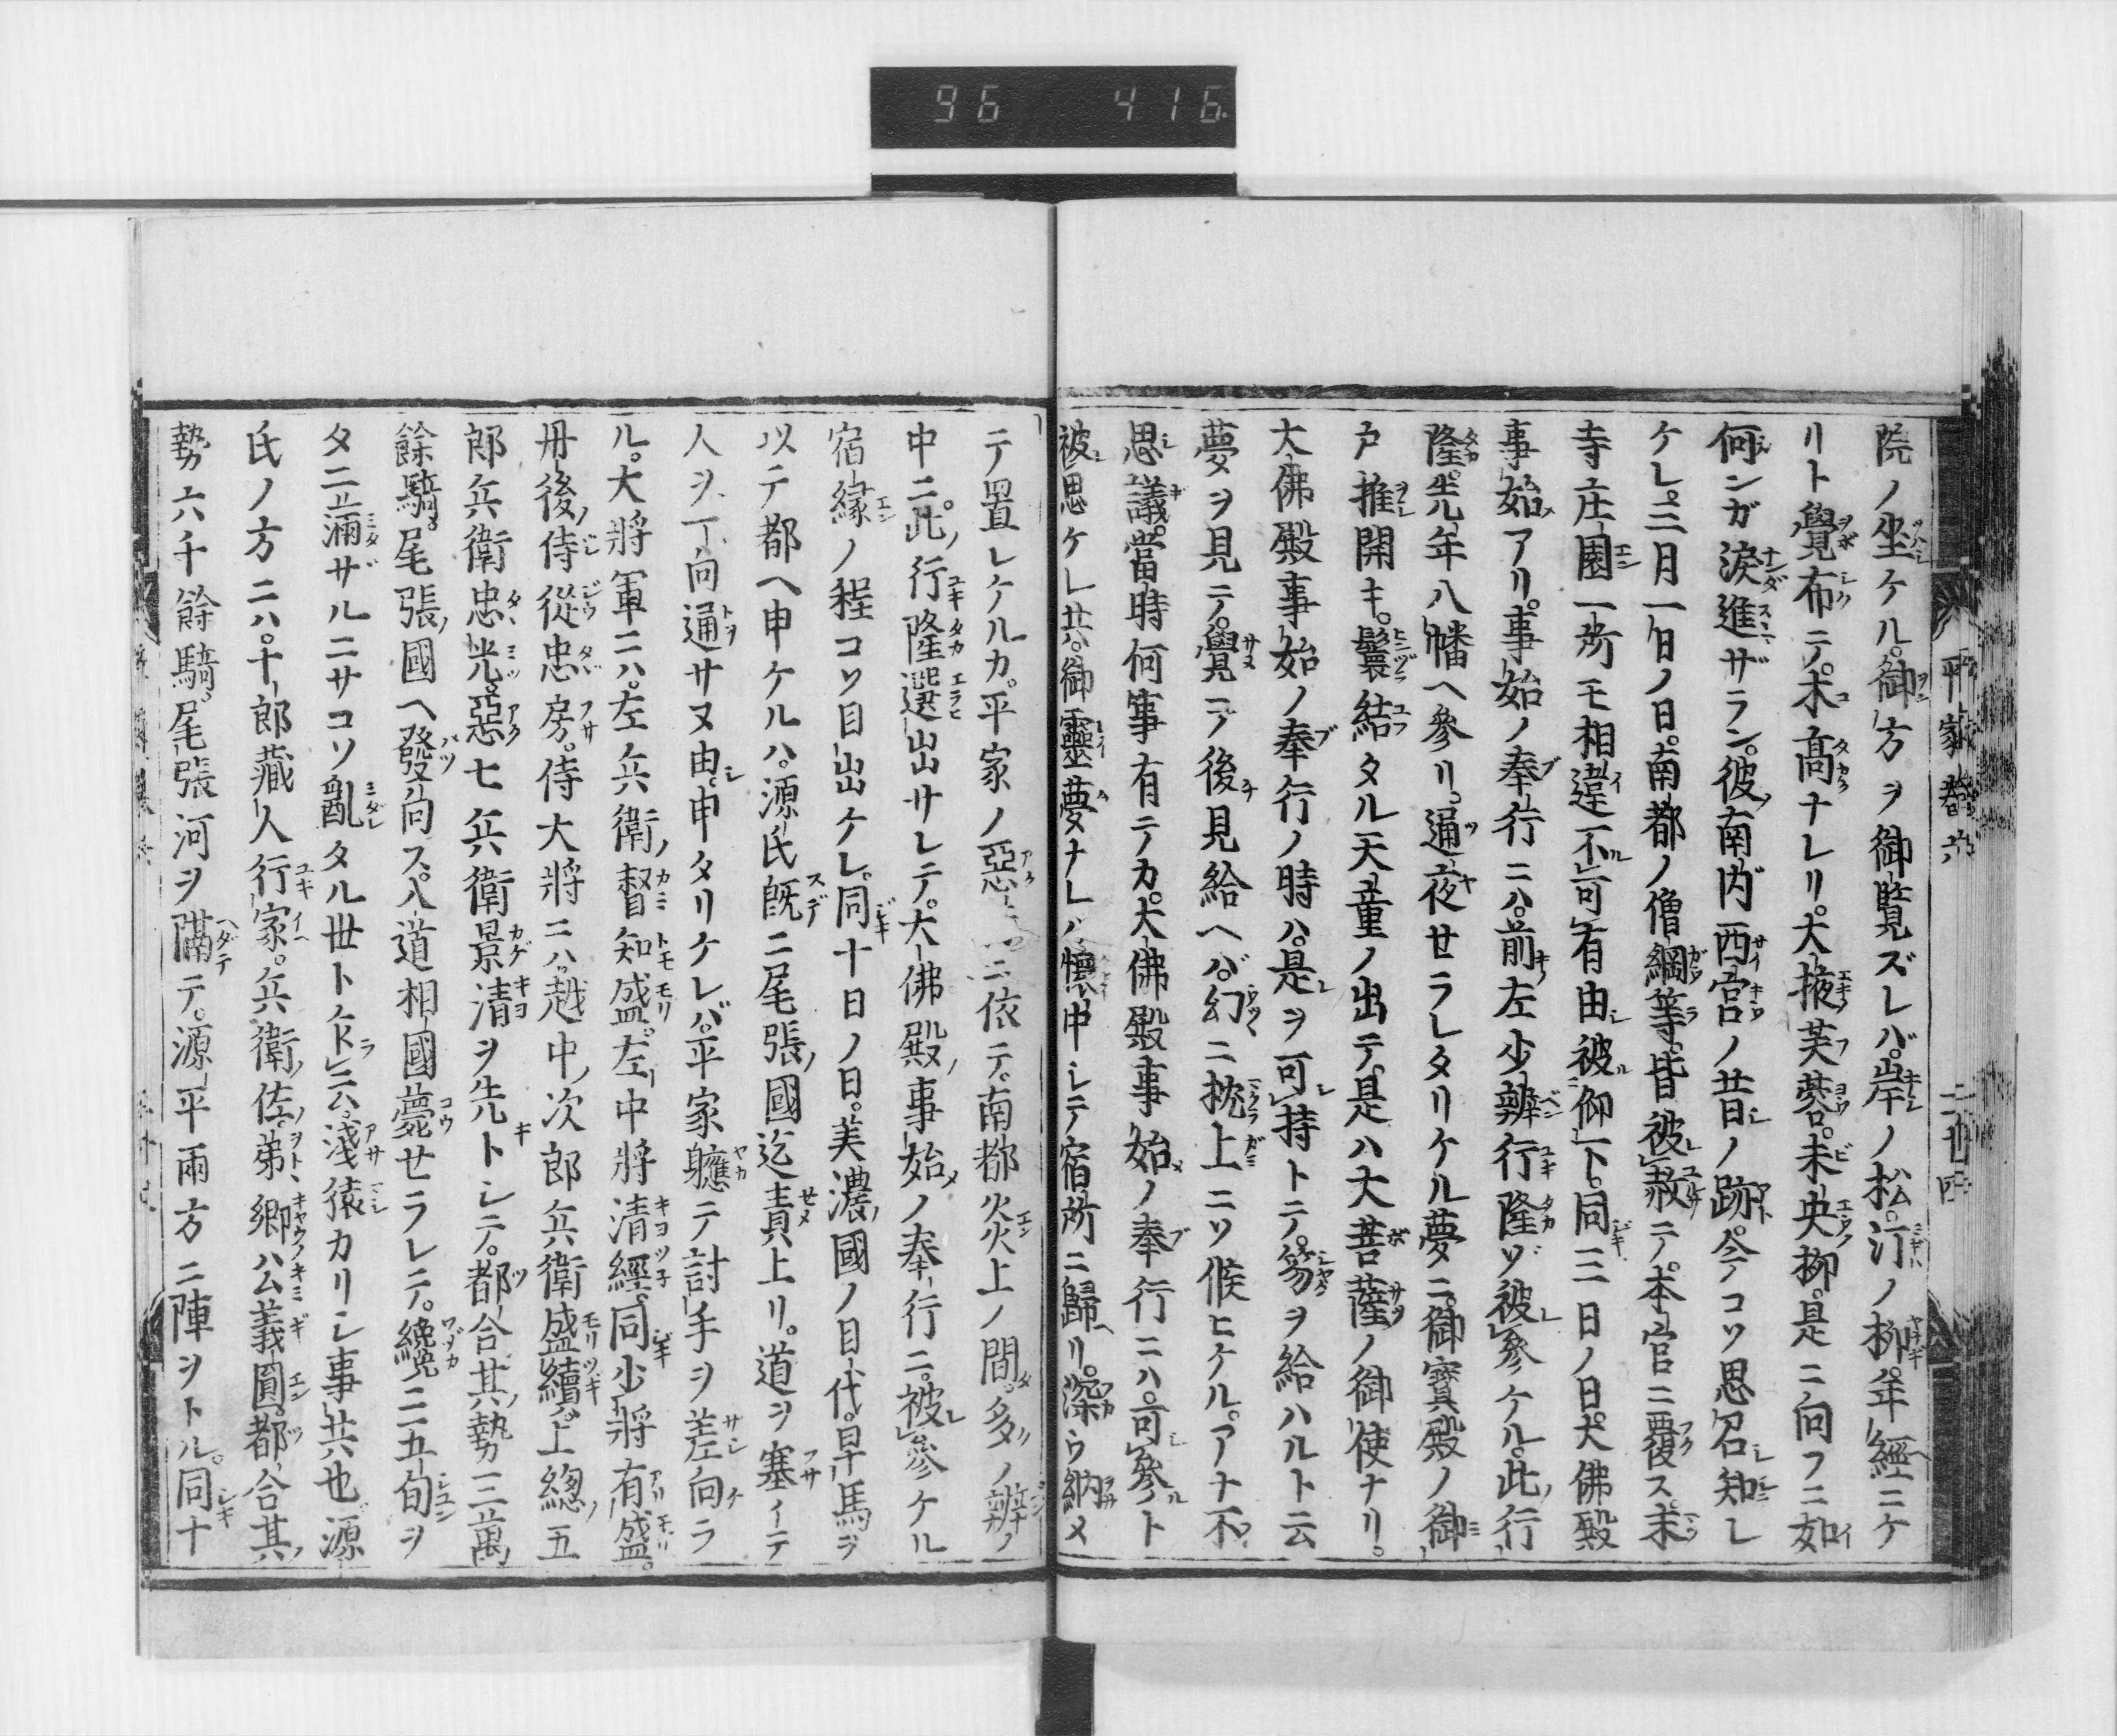 96 416
平家巻六 二十四
院ノ坐ケル。御方ヲ御覧ズレバ。岸ノ松。汀ノ柳。年經ニケ
リト覺布テ。木髙ナレリ。大掖芙蓉。未央柳。是ニ向フニ如
何ンガ涙進ザラン。彼南内西宮ノ昔ノ跡。今コソ思召知レ
ケレ。三月一日ノ日。南都ノ僧綱等。皆被赦テ。本官ニ覆ス。末
寺庄園一所モ相違不可有由被仰下。同三日ノ日。大佛殿
事始アリ。事始ノ奉行ニハ。前左少辨行隆ゾ被參ケル。此行
隆。先年八幡ヘ參リ。通夜セラレタリケル夢ニ。御寳殿ノ御
戸推開キ。鬟結タル天童ノ出テ。是ハ大菩薩ノ御使ナリ。
大佛殿事始ノ奉行ノ時ハ。是ヲ可持トテ。笏ヲ給ハルト云
夢ヲ見テ。覺テ後見給ヘバ。幻ニ枕上ニソ候ヒケル。アナ不
思議。當時何事有テカ。大佛殿事始ノ奉行ニハ。可參ト
被思ケレ共。御靈夢ナレバ懷中シテ宿所ニ歸リ。深ウ納メ
テ置レケルカ。平家ノ惡ニ依テ。南都炎上ノ間。多ノ辨ノ
中ニ。此行隆選出サレテ。大佛殿事始ノ奉行ニ。被參ケル
宿縁ノ程コソ目出ケレ。同十日ノ日。美濃國ノ目代。早馬ヲ
以テ都ヘ申ケルハ。源氏既ニ尾張國迄責上リ。道ヲ塞イテ
人ヲ一丁向通サヌ由。申タリケレバ。平家軈テ討手ヲ差向ラ
ル。大將軍ニハ。左兵衛督知盛。左中將清經。同少將有盛。
丹後侍從忠房。侍大將ニハ。越中次郎兵衛盛續。上総五
郎兵衛忠光。惡七兵衛景清ヲ先トシテ。都合其勢三萬
餘騎。尾張國ヘ發向ス。入道相國薨セラレテ。纔ニ五旬ヲ
タニ滿サルニサコソ亂タル世トイヘ共。淺猿カリシ事共也。源
氏ノ方ニハ。十郎藏人行家。兵衛佐弟。卿公義圓。都合其
勢六千餘騎。尾張河ヲ隔テ。源平兩方ニ陣ヲトル。同十